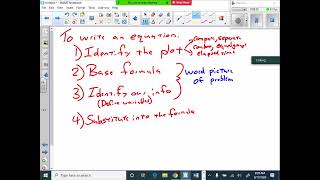 To write an equation:
1) Identify the plot
compare, separate
combo, equal groups
elapsed time
2) Base formula
3) Identify our info
(Define variables)
word picture
of problem
4) Substitute into the formula